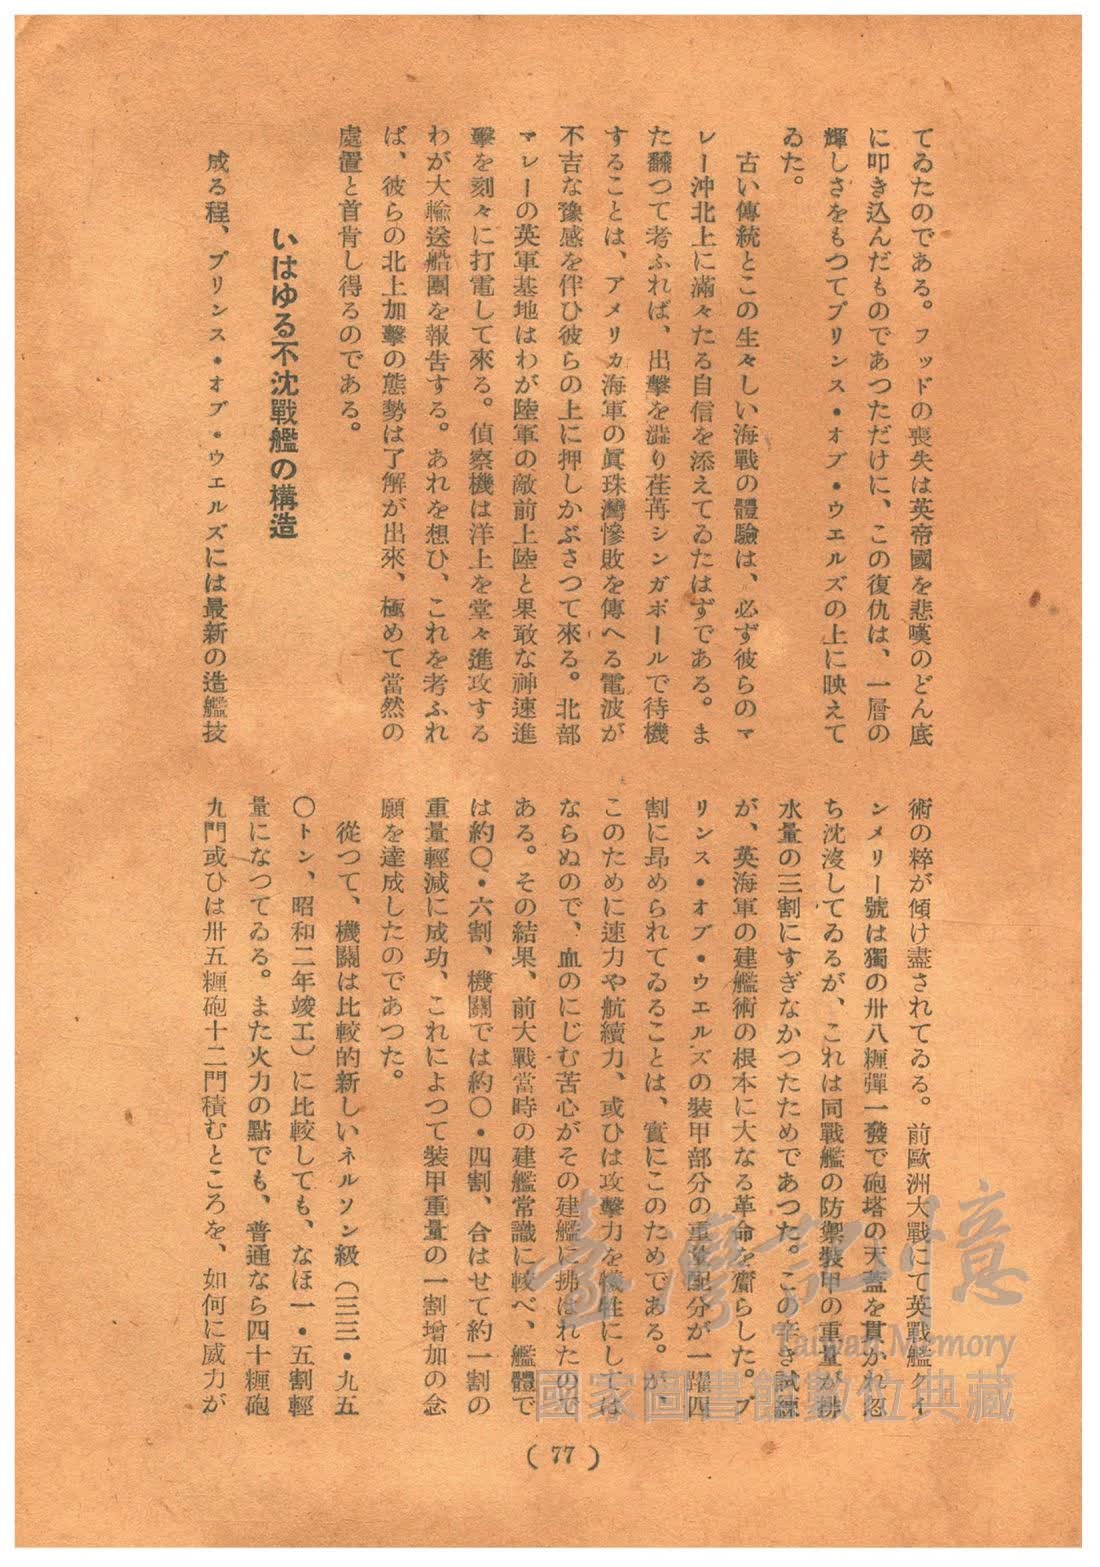 てゐたのである。フッドの喪失は英帝國を悲嘆のどん底
に叩き込んだものであつただけに、この復仇は、一層の
輝しさをもつてプリンス・オブ・ウエルズの上に映えて
ゐた。
古い傳統とこの生々しい海戰の體驗は、必ず彼らのマ
レー沖北上に滿々たる自信を添えてゐたはずである。ま
た飜つて考ふれば、出擊を澁り荏苒シンガポールで待機
することは、アメリカ海軍の眞珠灣慘敗を傳へる電波が
不吉な豫感を伴ひ彼らの上に押しかぶさつて來る。北部
マレーの英軍基地はわが陸軍の敵前上陸と果敢な神速進
擊を刻々に打電して來る。偵察機は洋上を堂々進攻する
わが大輸送船團を報告する。あれを想ひ、これを考ふれ
ば、彼らの北上加擊の態勢は了解が出來、極めて當然の
處置と首肯し得るのである。
いはゆる不沈戰艦の構造
成る程、プリンス・オブ・ウエルズには最新の造艦技
術の粹が傾け盡されてゐる。前歐洲大戰にて英戰艦クイ
ンメリー號は獨の卅八糎彈一發で砲塔の天蓋を貫かれ忽
ち沈沒してゐるが、これは同戰艦の防禦裝甲の重量が排
水量の三割にすぎなかつたためであつた。この辛き試練
が、英海軍の建艦術の根本に大なる革命を齎らした。プ
リンス・オブ・ウエルズの裝甲部分の重量配分が一躍四
割に昂められてゐることは、實にこのためである。が、
このために速力や航續力、或ひは攻擊力を犧牲にしては
ならぬので、血のにじむ苦心がその建艦に拂はれたので
ある。その結果、前大戰當時の建艦常識に較べ、艦體で
は約〇・六割、機關では約〇・四割、合はせて約一割の
重量輕減に成功、これによつて裝甲重量の一割增加の念
願を達成したのであつた。
從つて、機關は比較的新しいネルソン級（三三・九五
〇トン、昭和二年竣工）に比較しても、なほ一・五割輕
量になつてゐる。また火力の點でも、普通なら四十糎砲
九門或ひは卅五糎砲十二門積むところを、如何に威力が
( 77 )
臺灣記憶
Taiwan Memory
國家圖書館數位典藏